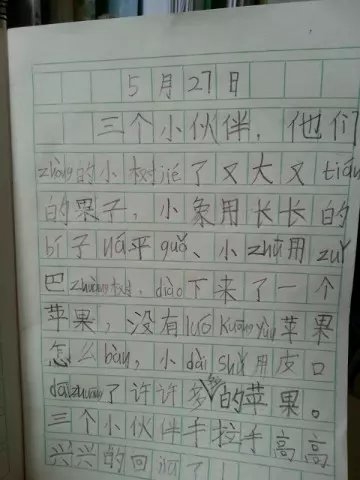 5月27日
三个小伙伴，他们
zhòng的小树jié了又大又tián
的果子，小象用长长的
bí子ná平guǒ、小zhū用zuǐ
巴zhuàng树，diào下来了一个
苹果，没有luó kuāng yùn苹果
怎么bàn，小dài shǔ用皮口
dàizhuāng了许许多多的苹果。
三个小伙伴手拉手高高
兴兴的回jiā了